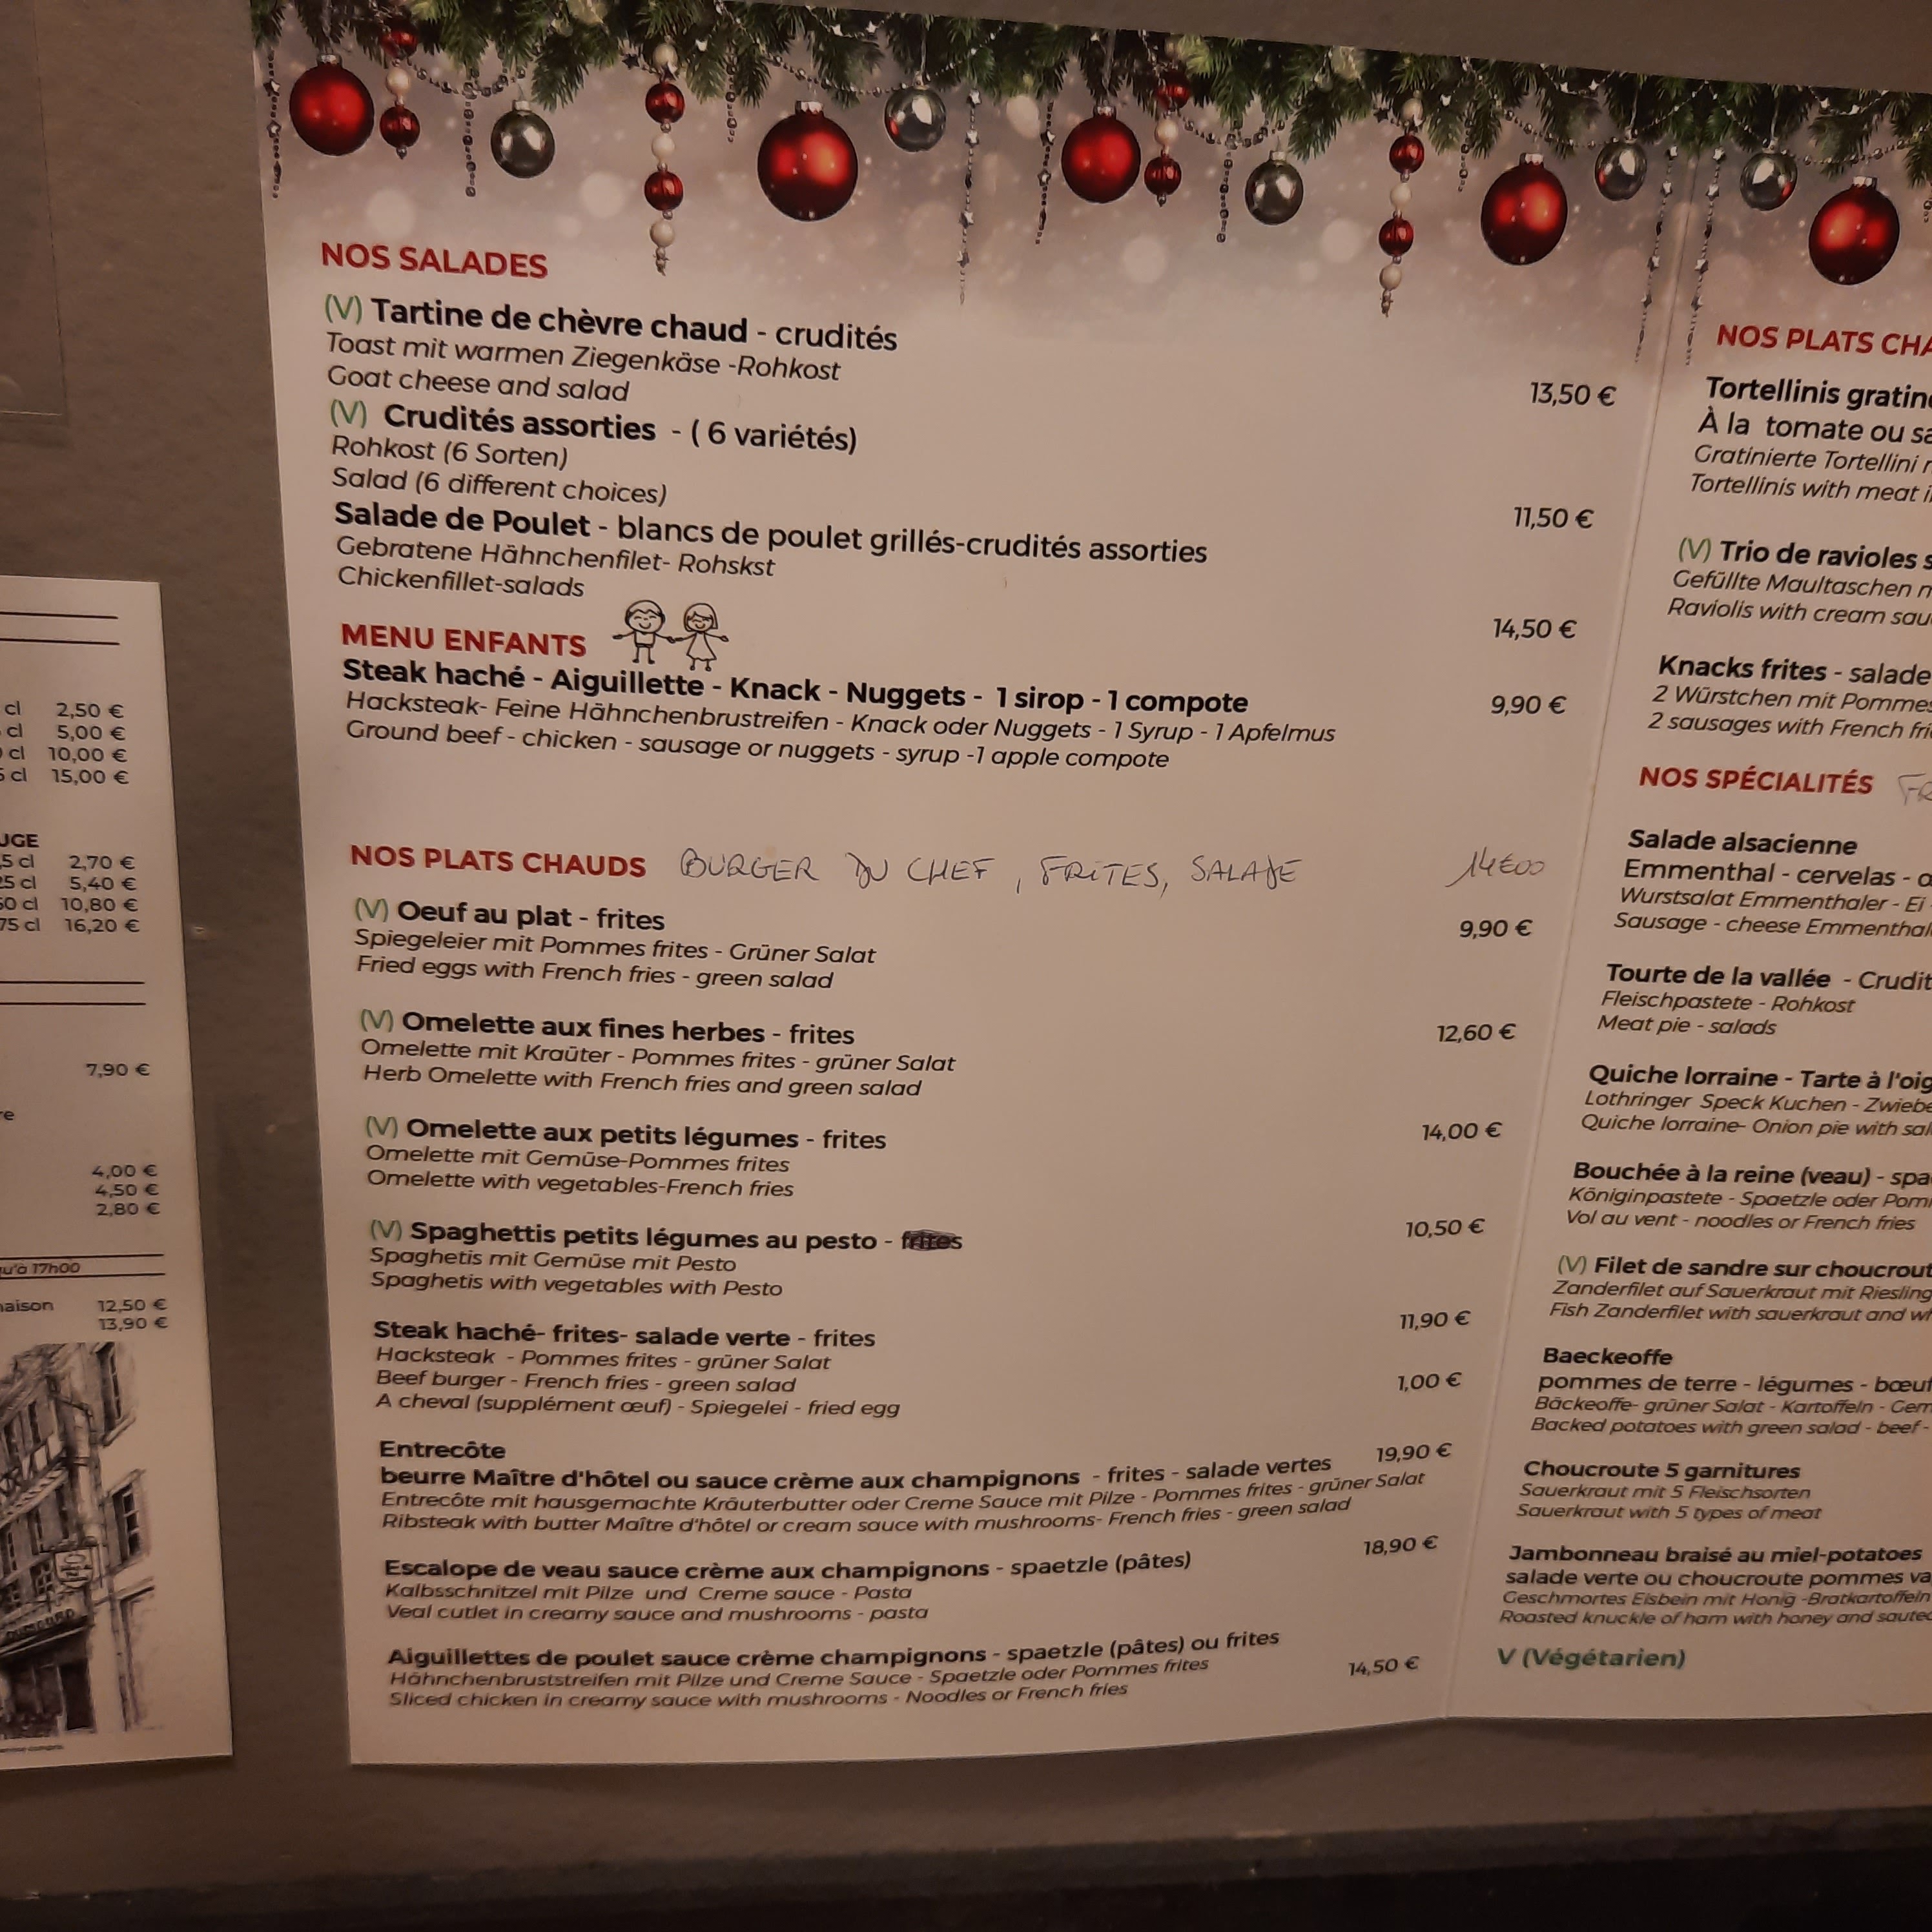 cl 2,50 €
cl 5,00 €
cl 10,00 €
cl 15,00 €
5 cl 2,70 €
25 cl 5,40 €
50 cl 10,80 €
75 cl 16,20 €
7,90 €
4,00 €
4,50 €
2,80 €
qu'à 17h00
maison 12,50 €
13,90 €
NOS SALADES
(V) Tartine de chèvre chaud - crudités
Toast mit warmen Ziegenkäse -Rohkost
Goat cheese and salad 13,50 €
(V) Crudités assorties - ( 6 variétés)
Rohkost (6 Sorten)
Salad (6 different choices) 11,50 €
Salade de Poulet - blancs de poulet grillés-crudités assorties
Gebratene Hähnchenfilet- Rohskst
Chickenfillet-salads 14,50 €
MENU ENFANTS
Steak haché - Aiguillette - Knack - Nuggets - 1 sirop - 1 compote 9,90 €
Hacksteak- Feine Hähnchenbrustreifen - Knack oder Nuggets - 1 Syrup - 1 Apfelmus
Ground beef - chicken - sausage or nuggets - syrup -1 apple compote
NOS PLATS CHAUDS BURGER DU CHEF, FRITES, SALADE 14€00
(V) Oeuf au plat - frites 9,90 €
Spiegeleier mit Pommes frites - Grüner Salat
Fried eggs with French fries - green salad
(V) Omelette aux fines herbes - frites 12,60 €
Omelette mit Kraüter - Pommes frites - grüner Salat
Herb Omelette with French fries and green salad
(V) Omelette aux petits légumes - frites 14,00 €
Omelette mit Gemüse-Pommes frites
Omelette with vegetables-French fries
(V) Spaghettis petits légumes au pesto - frites 10,50 €
Spaghetis mit Gemüse mit Pesto
Spaghetis with vegetables with Pesto
Steak haché- frites- salade verte - frites 11,90 €
Hacksteak - Pommes frites - grüner Salat
Beef burger - French fries - green salad
A cheval (supplément œuf) - Spiegelei - fried egg 1,00 €
Entrecôte 19,90 €
beurre Maître d'hôtel ou sauce crème aux champignons - frites - salade vertes
Entrecôte mit hausgemachte Kräuterbutter oder Creme Sauce mit Pilze - Pommes frites - grüner Salat
Ribsteak with butter Maître d'hôtel or cream sauce with mushrooms- French fries - green salad
Escalope de veau sauce crème aux champignons - spaetzle (pâtes) 18,90 €
Kalbsschnitzel mit Pilze und Creme sauce - Pasta
Veal cutlet in creamy sauce and mushrooms - pasta
Aiguillettes de poulet sauce crème champignons - spaetzle (pâtes) ou frites 14,50 €
Hähnchenbruststreifen mit Pilze und Creme Sauce - Spaetzle oder Pommes frites
Sliced chicken in creamy sauce with mushrooms - Noodles or French fries
NOS PLATS
Tortellinis
À la tomate ou
Gratinierte Tortellini
Tortellinis with meat
(V) Trio de ravioles
Gefüllte Maultaschen
Raviolis with cream
Knacks frites - salade
2 Würstchen mit Pommes
2 sausages with French
NOS SPÉCIALITÉS
Salade alsacienne
Emmenthal - cervelas -
Wurstsalat Emmenthaler - Ei
Sausage - cheese
Tourte de la vallée -
Fleischpastete - Rohkost
Meat pie - salads
Quiche lorraine - Tarte à
Lothringer Speck Kuchen -
Quiche lorraine- Onion pie with
Bouchée à la reine (veau) -
Königinpastete - Spaetzle oder
Vol au vent - noodles or French fries
(V) Filet de sandre sur
Zanderfilet auf Sauerkraut mit Riesling
Fish Zanderfilet with sauerkraut and
Baeckeoffe
pommes de terre - légumes -
Bäckeoffe- grüner Salat - Kartoffeln -
Backed potatoes with green salad - beef -
Choucroute 5 garnitures
Sauerkraut mit 5 Fleischsorten
Sauerkraut with 5 types of meat
Jambonneau braisé au miel-potatoes
salade verte ou choucroute pommes
Geschmortes Eisbein mit Honig -Bratkartoffeln
Roasted knuckle of ham with honey and
V (Végétarien)